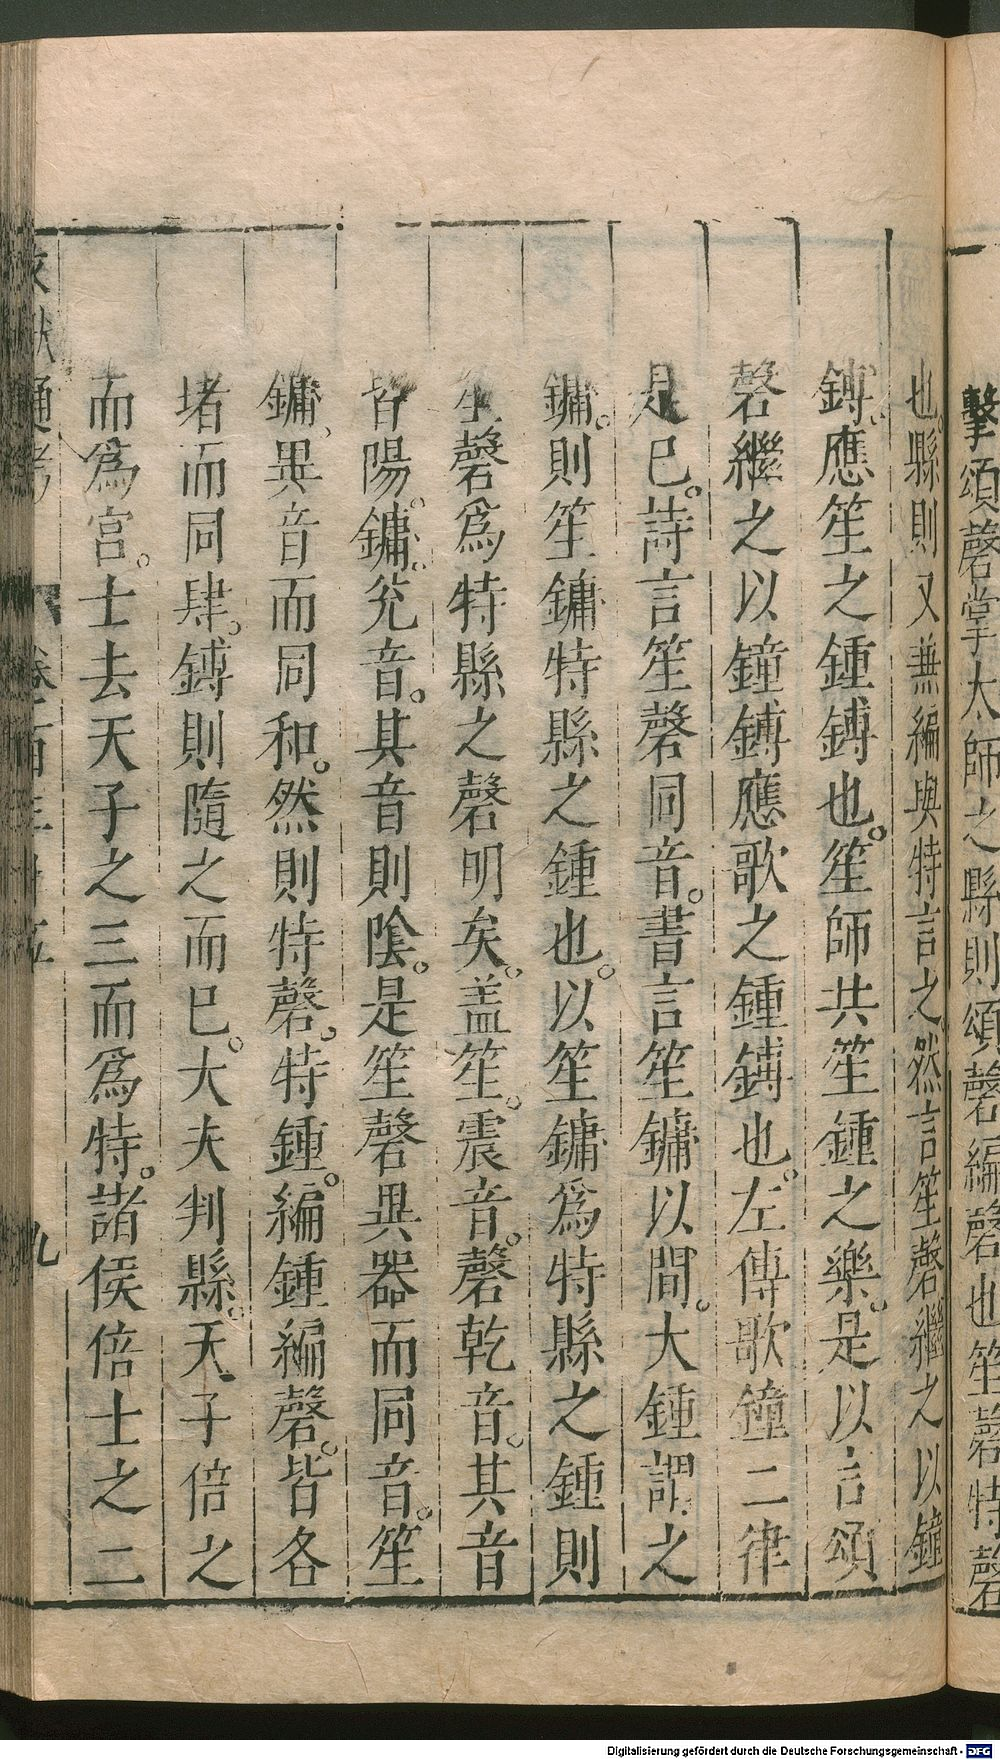 擊頌磬掌大師之縣則頌磬編磬也笙磬特磬
也。縣則又無編與特言之。然言笙磬繼之以鐘
鎛。應笙之鍾鎛也。笙師共笙鍾之樂。是以言頌
磬繼之以鐘鎛應歌之鍾鎛也。左傳歌鐘二律
是巳。詩言笙磬同音。書言笙鏞以間。大鍾謂之
鏞。則笙鏞特縣之鍾也。以笙鏞為特縣之鍾則
笙磬為特縣之磬明矣。盖笙。震音。磬乾音。其音
皆陽。鏞。兊音。其音則陰。是笙磬異器而同音。笙
鏞、異音而同和。然則特磬。特鍾。編鍾編磬。皆各
堵而同肆。鎛則隨之而巳。大夫判縣。天子倍之
而為宮。士去天子之三而為特。諸侯倍士之二
文獻通考 卷一百三十五 九
Digitalisierung gefördert durch die Deutsche Forschungsgemeinschaft - DFG